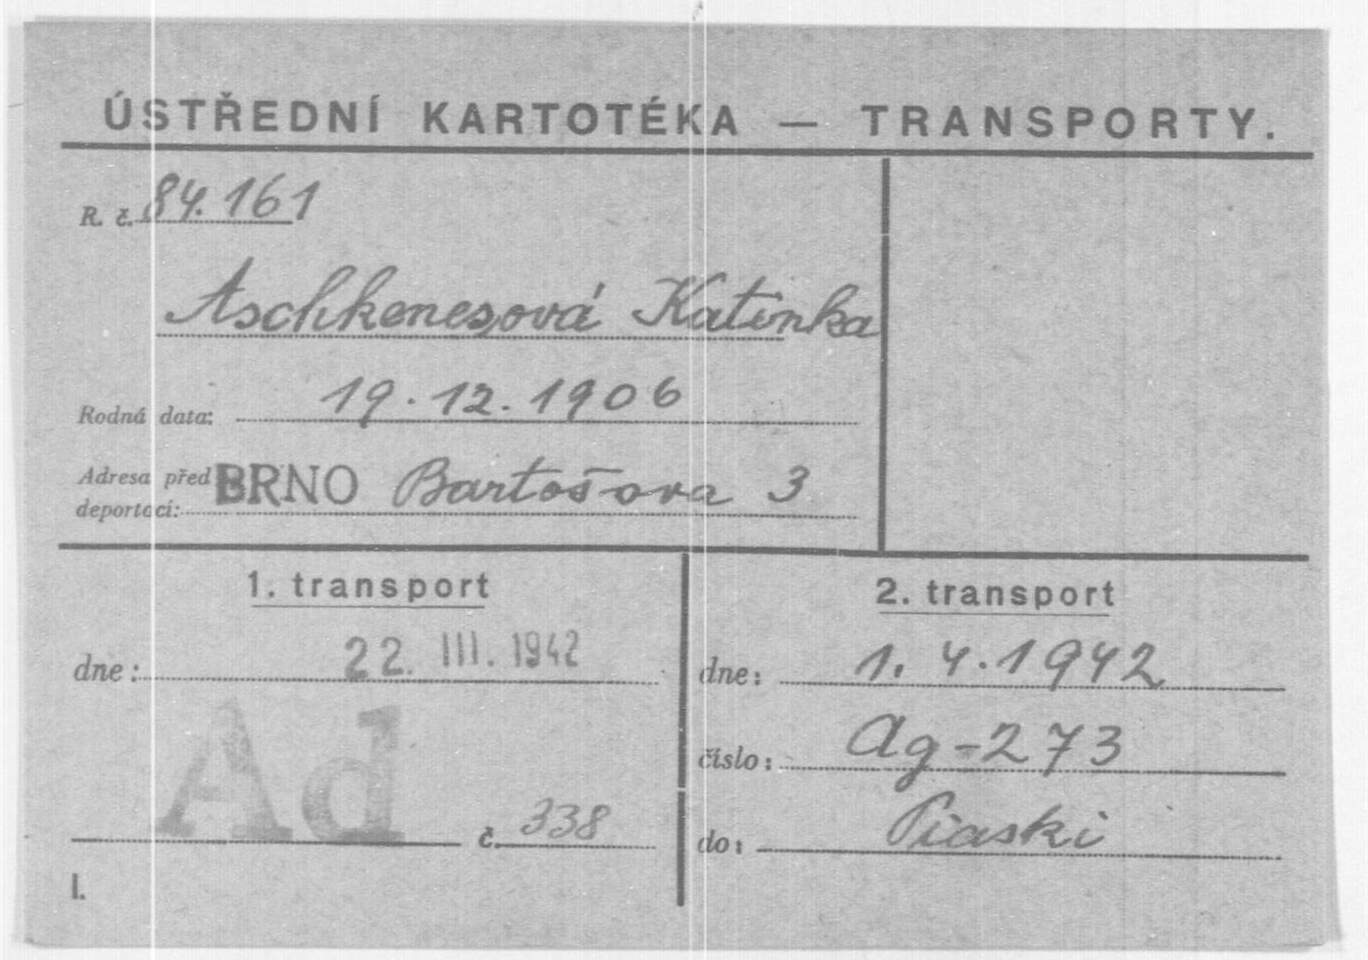 ÚSTŘEDNÍ KARTOTÉKA — TRANSPORTY.
R. č. 84.161
Aschkenesová Katinka
Rodná data: 19.12.1906
Adresa před deportací: BRNO Bartošova 3
1. transport
dne: 22. III. 1942
Ad č. 338
I.
2. transport
dne: 1.4.1942
číslo: Ag-273
do: Piaski